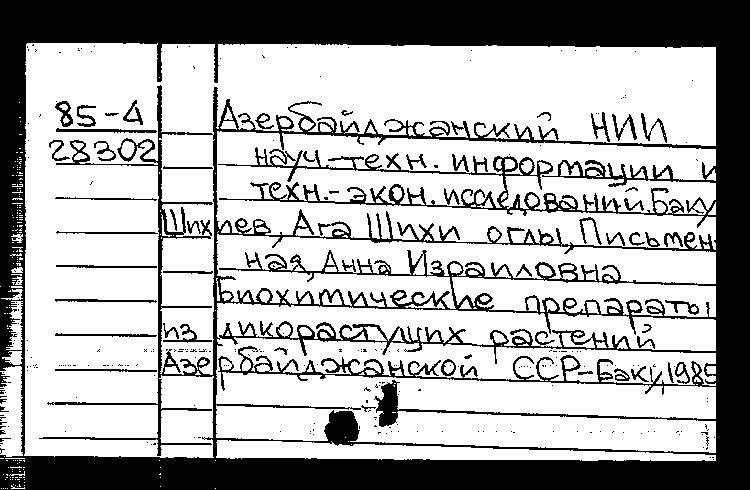 85-4
28302
Азербайджанский НИИ
науч-техн. информации и
техн.-экон. исследований. Баку
Шихиев, Ага Шихи оглы, Письмен-
ная, Анна Израиловна
Биохимические препараты
из дикорастущих растений
Азербайджанской ССР-Баку, 1985